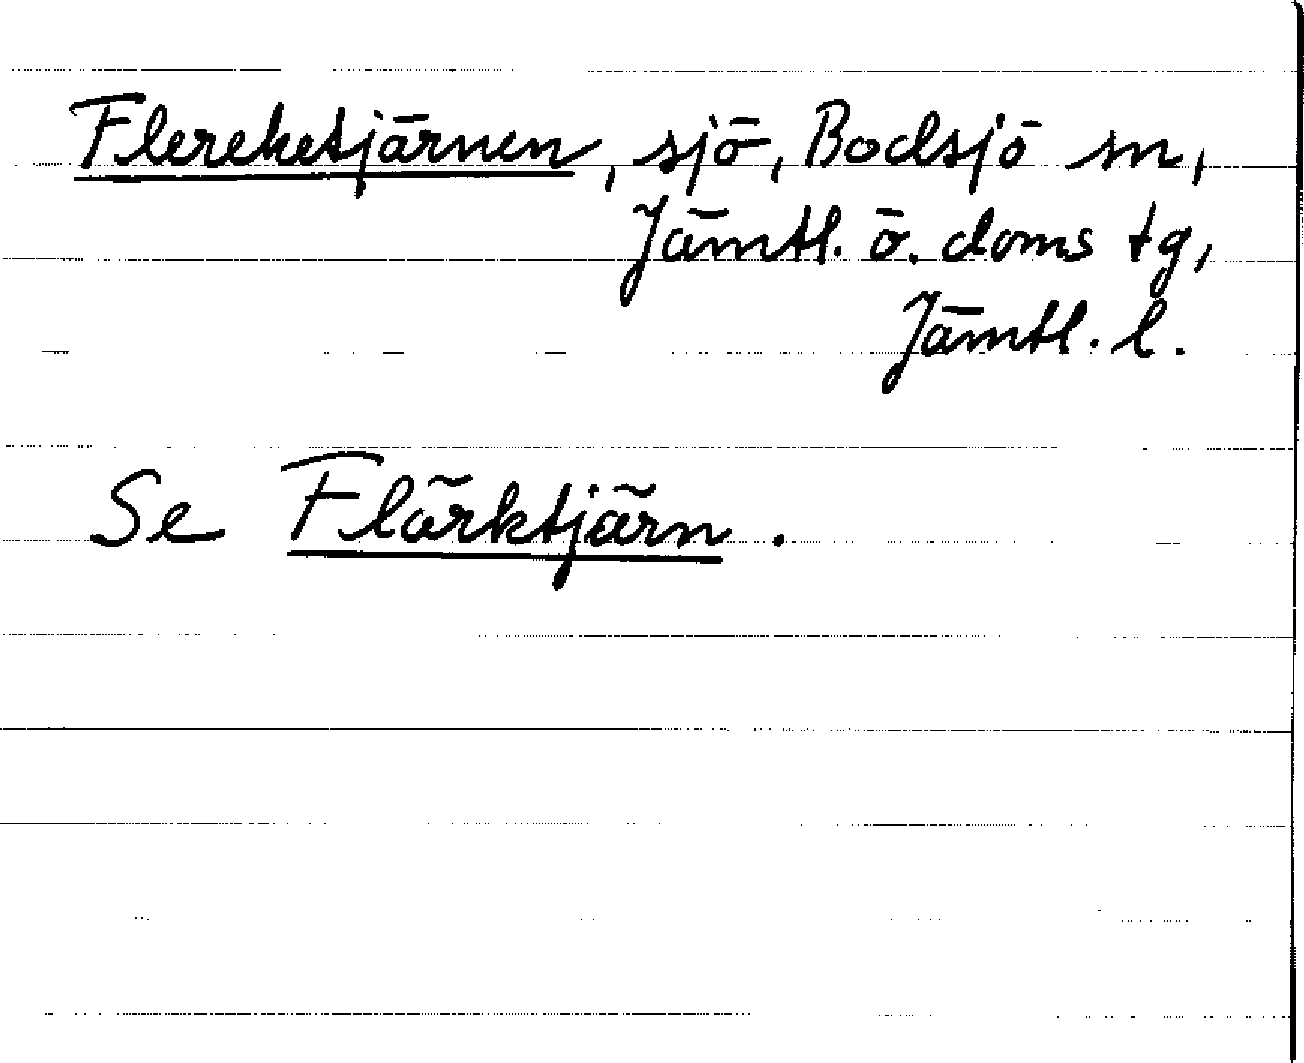 Flereketjärnen, sjö, Bodsjö sn,
Jämtl. ö. doms tg,
Jämtl. l.
Se Flärktjärn.